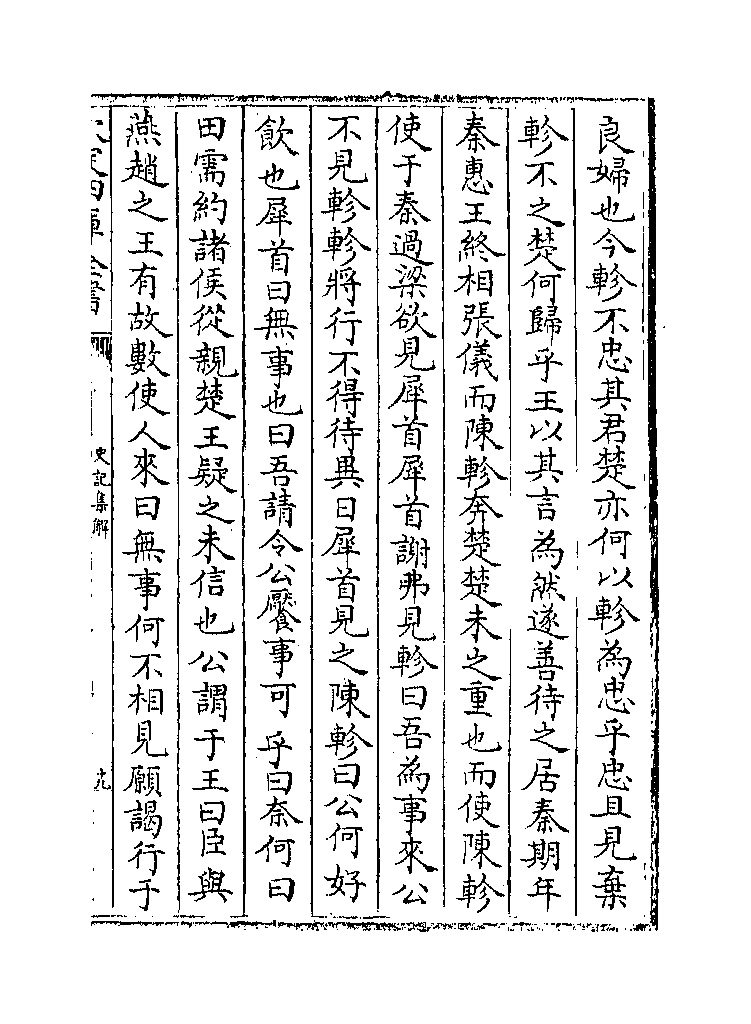 良婦也今軫不忠其君楚亦何以軫為忠乎忠且見棄
軫不之楚何歸乎王以其言為然遂善待之居秦期年
秦惠王終相張儀而陳軫奔楚楚未之重也而使陳軫
使于秦過梁欲見犀首犀首謝弗見軫曰吾為事來公
不見軫軫將行不得待異日犀首見之陳軫曰公何好
飲也犀首曰無事也曰吾請令公饜事可乎曰奈何曰
田需約諸侯從親楚王疑之未信也公謂于王曰臣與
燕趙之王有故數使人來曰無事何不相見願謁行于
史記集解